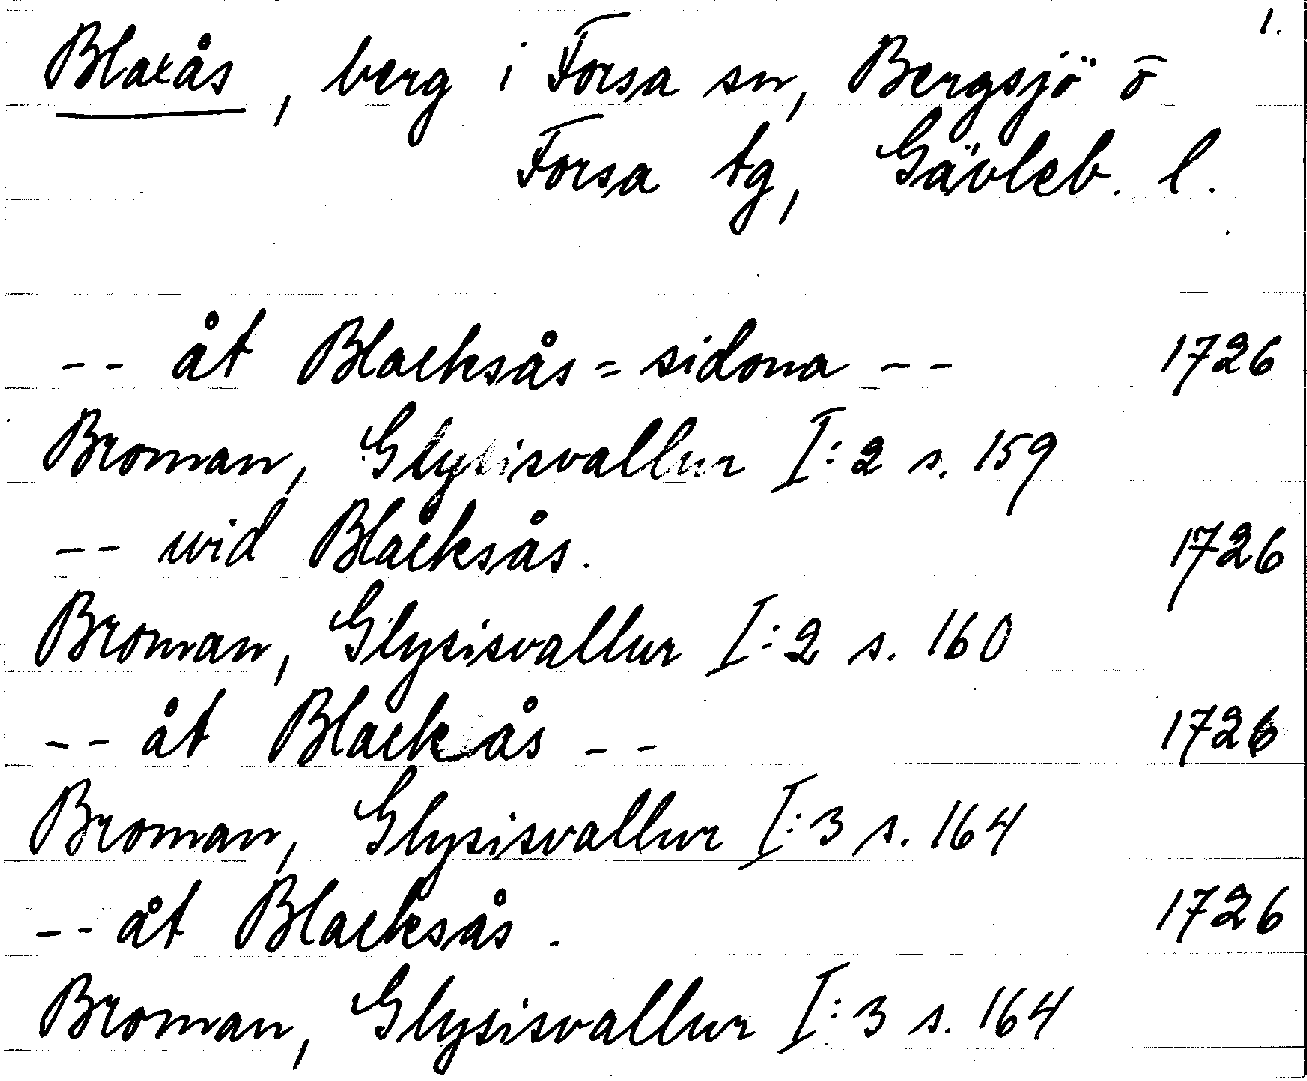 1.
Blaxås, berg i Forsa sn, Bergsjö o
Forsa tg, Gävleb. l.
-- åt Blacksås=sidona -- 1726
Broman, Glysisvallur I:2 s. 159
-- wid Blacksås. 1726
Broman, Glysisvallur I:2 s. 160
-- åt Blackås -- 1726
Broman, Glysisvallur I:3 s. 164
-- åt Blacksås. 1726
Broman, Glysisvallur I:3 s. 164